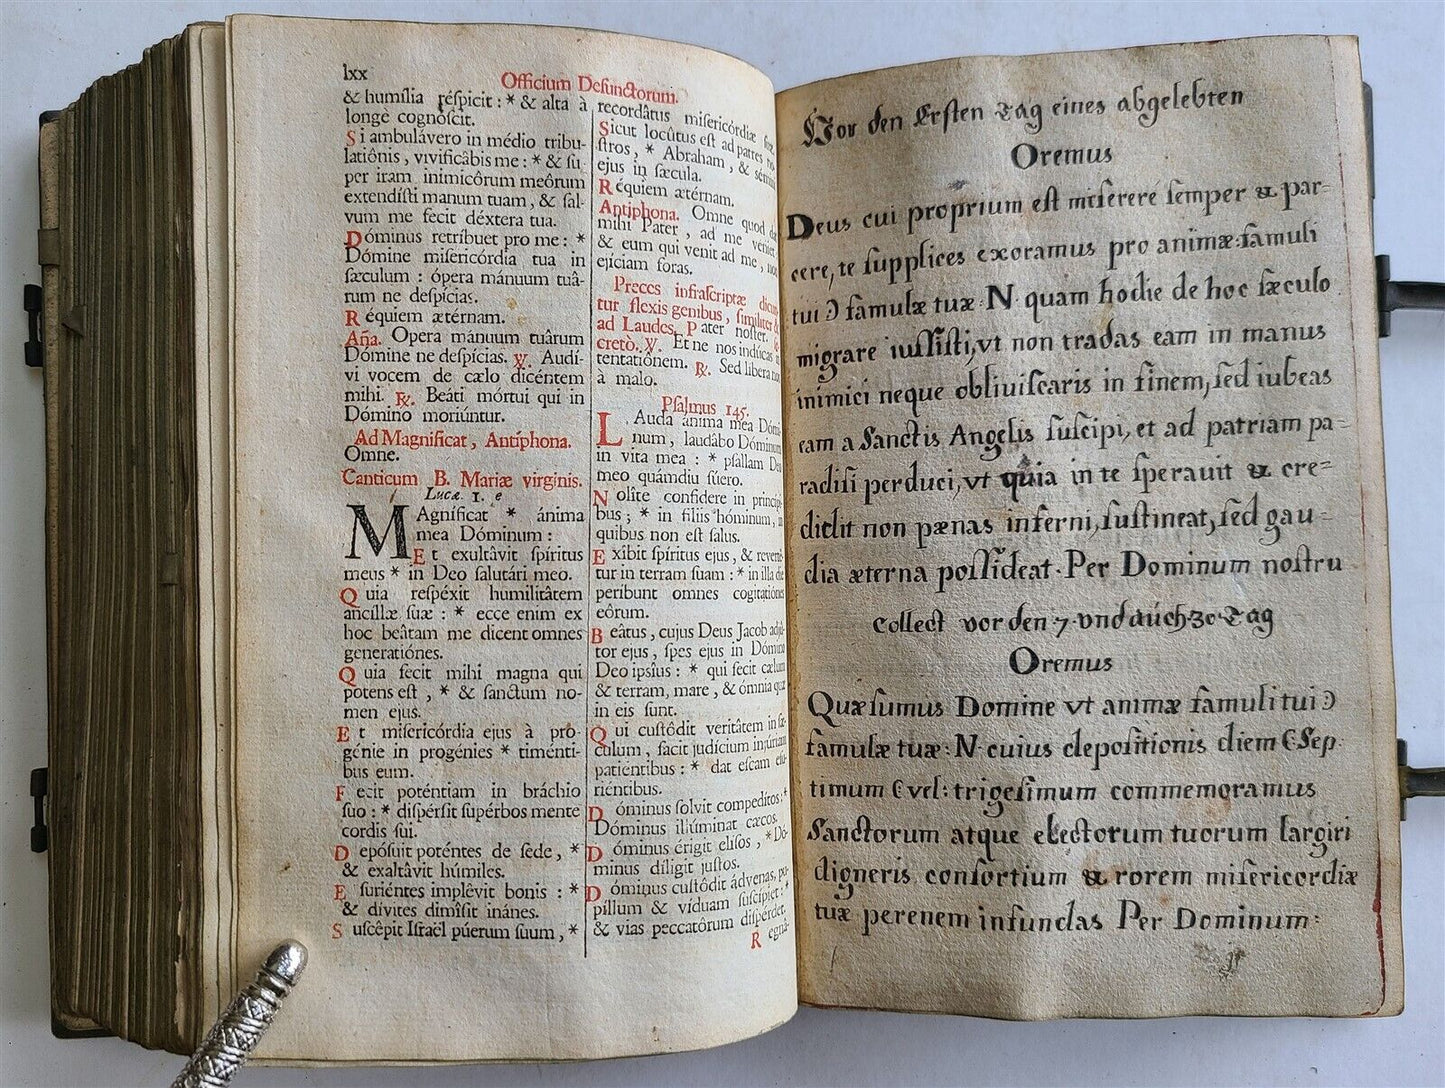 lxx
Officium Defunctorum.
& humília réspicit : * & alta à
longè cognóscit.
Si ambulávero in médio tribu-
latiônis, vivificâbis me : * & su-
per iram inimicôrum meôrum
extendísti manum tuam, & sal-
vum me fecit déxtera tua.
Dóminus retríbuet pro me : *
Dómine misericórdia tua in
sæculum : ópera mánuum tuâ-
rum ne despícias.
Réquiem ætérnam.
Aña. Opera mánuum tuârum
Dómine ne despícias. ℣. Audí-
vi vocem de cælo dicéntem
mihi. ℟. Beáti mórtui qui in
Dómino moriúntur.
Ad Magnificat, Antíphona.
Omne.
Canticum B. Mariæ virginis.
Lucæ 1. e
MAgníficat * ánima
mea Dóminum :
Et exultâvit spíritus
meus * in Deo salutári meo.
Quia respéxit humilitâtem
ancíllæ suæ : * ecce enim ex
hoc beâtam me dicent omnes
generatiónes.
Quia fecit mihi magna qui
potens est, * & sanctum no-
men ejus.
Et misericórdia ejus à pro-
génie in progénies * timénti-
bus eum.
Fecit poténtiam in bráchio
suo : * dispérsit supérbos mente
cordis sui.
Depósuit poténtes de sede, *
& exaltâvit húmiles.
Esuriéntes implêvit bonis : *
& dívites dimîsit inánes.
Suscêpit Israël púerum suum, *
recordâtus misericórdiæ suæ.
Sicut locûtus est ad patres no-
stros, * Abraham, & sémini
ejus in sæcula.
Réquiem ætérnam.
Antiphona. Omne quod dat
mihi Pater, ad me véniet,
& eum qui venit ad me, non
ejíciam foras.
Preces infrascriptæ dicun-
tur flexis genibus, similiter &
ad Laudes. Pater noster.
cretò. ℣. Et ne nos indúcas in
tentatiónem. ℟. Sed líbera nos
à malo.
Psalmus 145.
LAuda ánima mea Dómi-
num, laudâbo Dóminum
in vita mea : * psallam Deo
meo quámdiu fúero.
Nolíte confídere in princípi-
bus ; * in fíliis hóminum, in
quibus non est salus.
Exîbit spíritus ejus, & reverté-
tur in terram suam : * in illa die
períbunt omnes cogitatiónes
eôrum.
Beâtus, cujus Deus Jacob adjú-
tor ejus, spes ejus in Dómino
Deo ipsíus : * qui fecit cælum
& terram, mare, & ómnia quæ
in eis sunt.
Qui custôdit veritâtem in sæ-
culum, facit judícium injúriam
patiéntibus : * dat escam esu-
riéntibus.
Dóminus solvit compedítos : *
Dóminus illúminat cæcos.
Dóminus érigit elísos, * Dó-
minus díligit justos.
Dóminus custôdit ádvenas, pu-
píllum & víduam suscípiet : *
& vias peccatôrum dispérdet.
Regnâ-
Vor den Ersten Tag eines abgelebten
Oremus
Deus cui proprium est miserére semper & par=
cere, te supplices exoramus pro animæ:famuli
tui Ↄ famulæ tuæ N quam hodie de hoc sæculo
migrare iussisti, vt non tradas eam in manus
inimici neque obliuiscaris in finem, sed iubeas
eam a Sanctis Angelis suscipi, et ad patriam pa=
radisi perduci, vt quia in te sperauit & cre=
didit non pænas inferni, sustineat, sed gau=
dia æterna possideat. Per Dominum nostru
Collect vor den 7 vnd auch 30 Tag
Oremus
Quæsumus Domine vt animæ famuli tui Ↄ
famulæ tuæ: N cuius depositionis diem ESep
timum E vel: trigesimum commemoramus
Sanctorum atque electorum tuorum largiri
digneris consortium & rorem misericordiæ
tuæ perenem infundas Per Dominum: